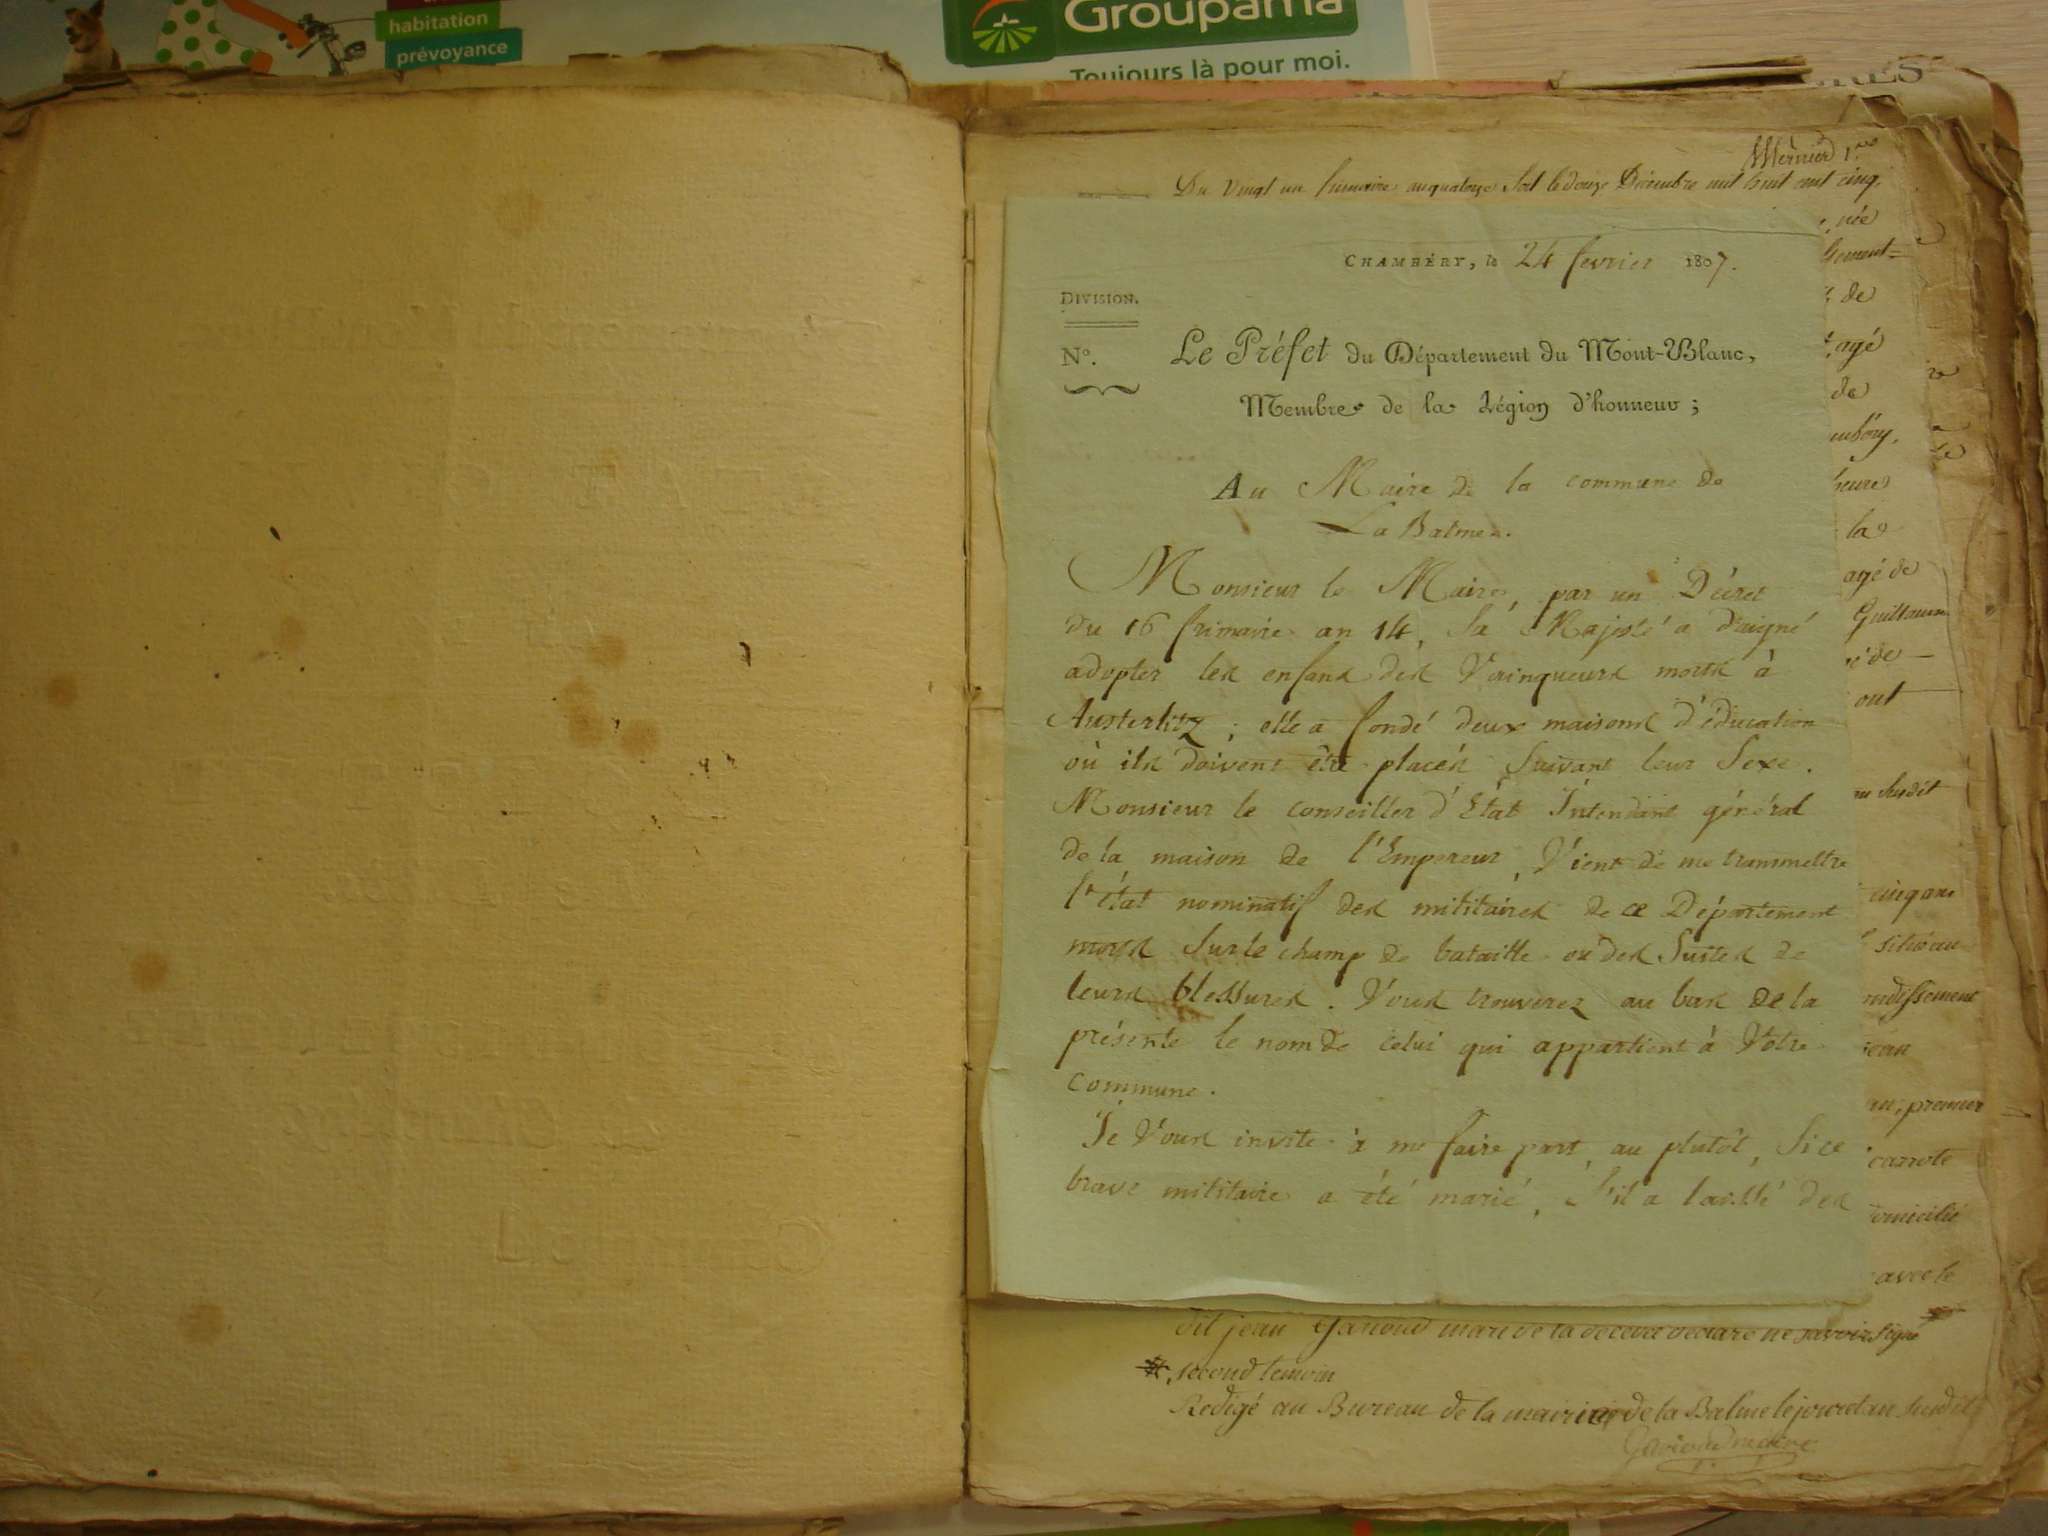 habitation
prévoyance
Groupama
Toujours là pour moi.
Du vingt un frimaire an quatorze soit le douze Décembre mil huit cent cinq.
née
de
agé
de
heure
la
agé de
Guillaume
de
ont
susdit
cinq ans
premier
domicilié
avec le
CHAMBÉRY, le 24 fevrier 1807.
DIVISION.
N°.
Le Préfet du Département du Mont-Blanc,
Membre de la Légion d'honneur ;
Au Maire de la commune de
La Balme.
Monsieur le Maire, par un Décret
du 16 frimaire an 14, Sa Majesté a daigné
adopter les enfans des Vainqueurs morts à
Austerlitz ; elle a fondé deux maisons d'éducation
où ils doivent être placés Suivant leur Sexe.
Monsieur le conseiller d'Etat Intendant général
de la maison de l'Empereur, Vient de me transmettre
l'état nominatif des militaires de ce Département
morts Sur le champ de bataille ou des Suites de
leurs blessures. Vous trouverez au bas de la
présente le nom de celui qui appartient à Vôtre
commune.
Je Vous invite à me faire part, au plutôt, Si ce
brave militaire a été marié, S'il a laissé des
dit jean Garioud mari de la décédé déclaré ne savoir signé
second temoin
Redigé au Bureau de la mairie de la Balme le jour et an susdit
Gariod maire